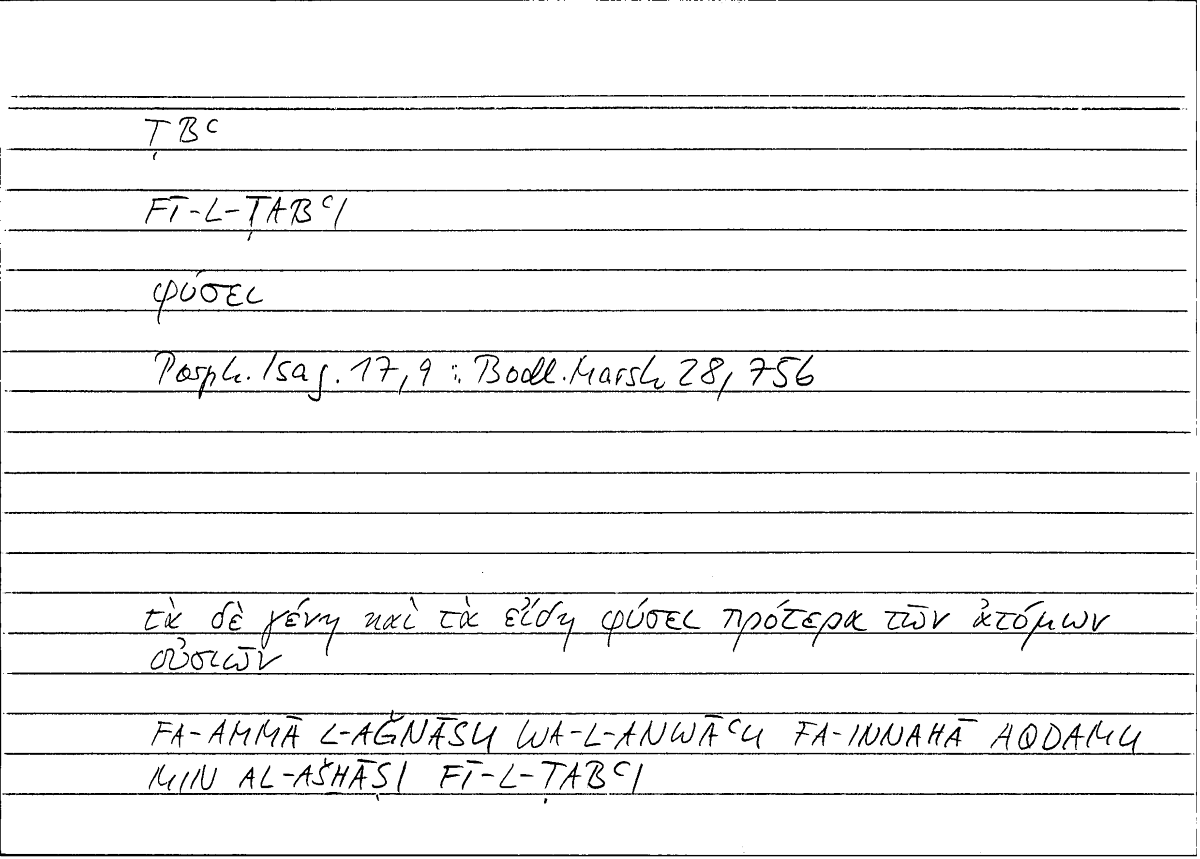 ṬBᶜ
FĪ-L-ṬABᶜI
φύσει
Porph. Isag. 17,9 :. Bodl. Marsh 28, 756
τὰ δὲ γένη καὶ τὰ εἴδη φύσει πρότερα τῶν ἀτόμων
οὐσιῶν
FA-AMMĀ L-AǦNĀSU WA-L-ANWĀᶜU FA-INNAHĀ AQDAMU
MIN AL-AŠḪĀṢI FĪ-L-ṬABᶜI